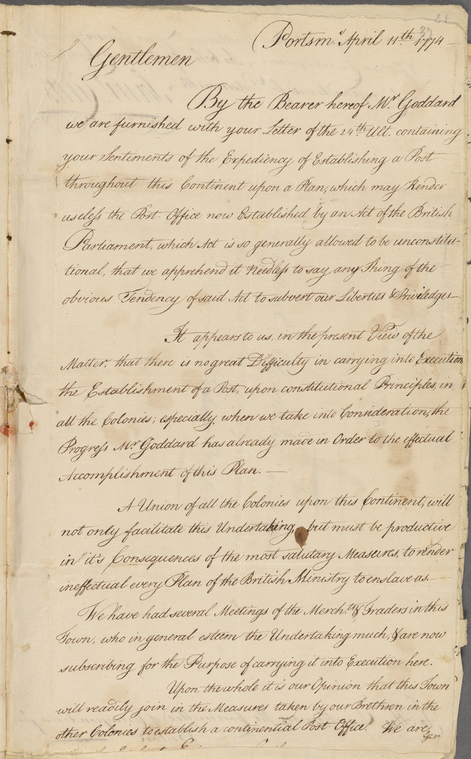 21
32
Portsmo. April 11th 1774
Gentlemen
By the Bearer hereof Mr. Goddard
we are furnished with your Letter of the 24th Ult. containing
your Sentiments of the Expediency of Establishing a Post
throughout this Continent upon a Plan, which may Render
useless the Post Office now Established by an Act of the British
Parliament, which Act is so generally allowed to be unconstitu-
tional, that we apprehend it Needless to say any thing of the
obvious Tendency of said Act to subvert our Liberties & Priviledges—
It appears to us, in the present View of the
Matter, that there is no great Difficulty in carrying into Execution
the Establishment of a Post, upon constitutional Principles in
all the Colonies; especially when we take into Consideration, the
Progress Mr. Goddard has already made in Order to the effectual
Accomplishment of this Plan. —
A Union of all the Colonies upon this Continent, will
not only facilitate this Undertaking, but must be productive
in it's Consequences of the most salutary Measures, to render
ineffectual every Plan of the British Ministry to enslave us—
We have had several Meetings of the Merchts. & Traders in this
Town, who in general esteem the Undertaking much, & are now
subscribing for the Purpose of carrying it into Execution here.
Upon the whole it is our Opinion that this Town
will readily join in the Measures taken by our Brethren in the
other Colonies to establish a continential Post Office. We are